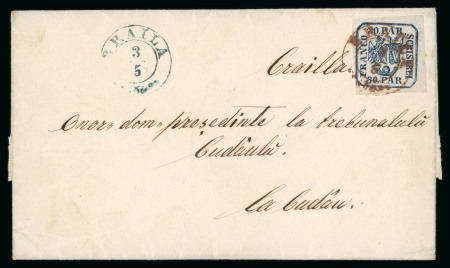 BRAILA
3
5
30 PAR
FRANCO
SCRISOREI
30 PAR.
Crailla
Onor. dom. preşedinte la trebunalulu
Cudăulu.
La Cudău.